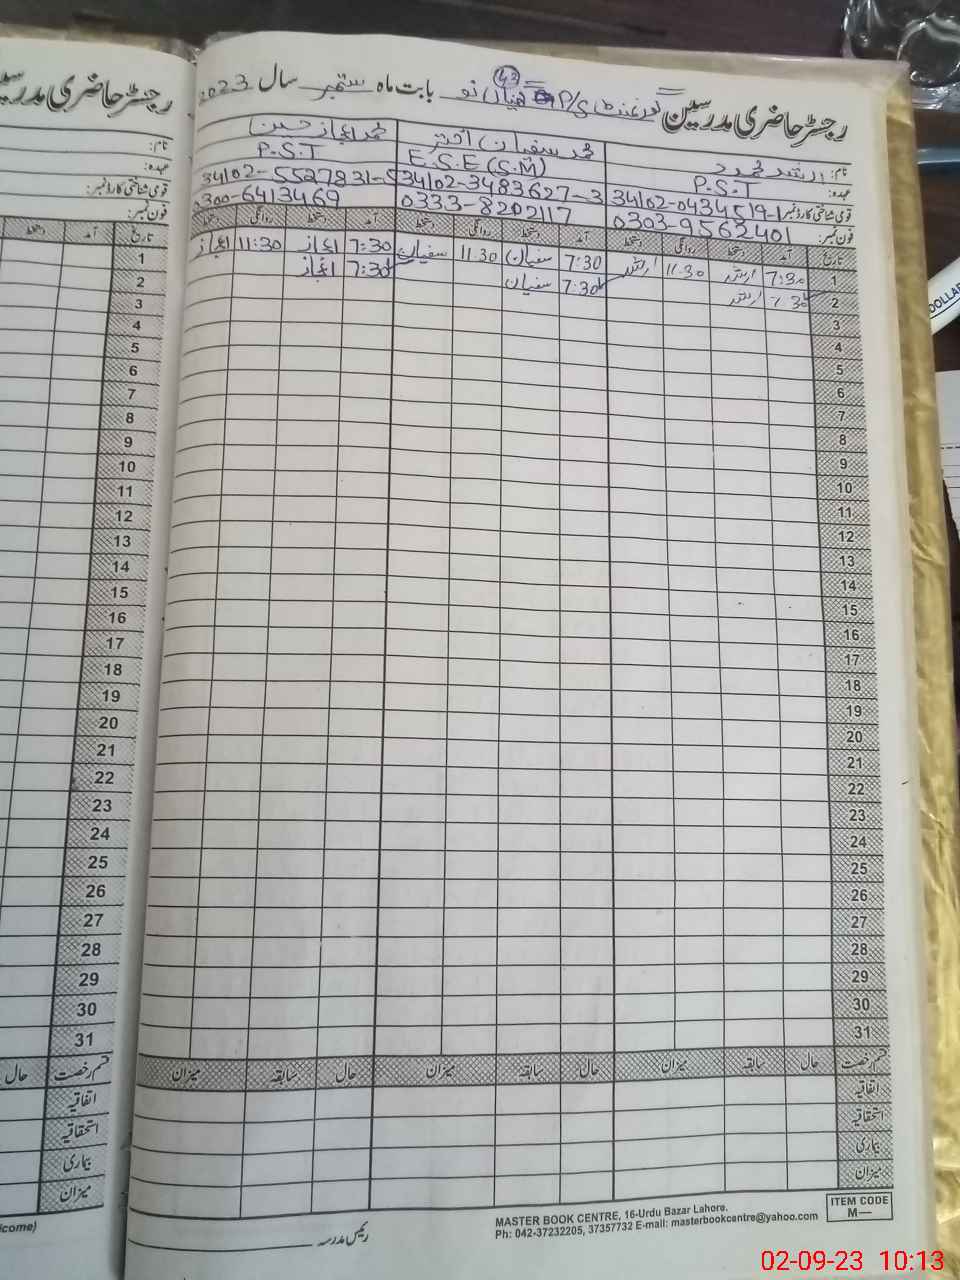 رجسٹر حاضری مدرسین گورنمنٹ P/S میاں نو 43 بابت ماہ ستمبر سال 2023
نام: ارشد محمود محمد سفیان اختر محمد اعجاز حسین
عہدہ: P.S.T E.S.E (S.M) P.S.T
قومی شناختی کارڈ نمبر: 34102-0434519-1 34102-3483627-3 34102-5527831-5
فون نمبر: 0303-9562401 0333-8202117 0300-6413469
تاریخ آمد دستخط روانگی دستخط آمد دستخط روانگی دستخط آمد دستخط روانگی دستخط
1 7:30 ارشد 11.30 ارشد 7:30 سفیان 11.30 سفیان 7:30 اعجاز 11:30 اعجاز
2 7:30 ارشد 7:30 سفیان 7:30 اعجاز
3
4
5
6
7
8
9
10
11
12
13
14
15
16
17
18
19
20
21
22
23
24
25
26
27
28
29
30
31
قسم رخصت حال سابقہ میزان حال سابقہ میزان حال سابقہ میزان
اتفاقیہ
استحقاقیہ
بیماری
میزان
رئیس مدرسہ
MASTER BOOK CENTRE, 16-Urdu Bazar Lahore.
Ph: 042-37232205, 37357732 E-mail: masterbookcentre@yahoo.com
ITEM CODE
M—
رجسٹر حاضری مدرسین
نام:
عہدہ:
قومی شناختی کارڈ نمبر:
فون نمبر:
تاریخ آمد دستخط
1
2
3
4
5
6
7
8
9
10
11
12
13
14
15
16
17
18
19
20
21
22
23
24
25
26
27
28
29
30
31
قسم رخصت حال
اتفاقیہ
استحقاقیہ
بیماری
میزان
icome)
DOLLAR
02-09-23 10:13